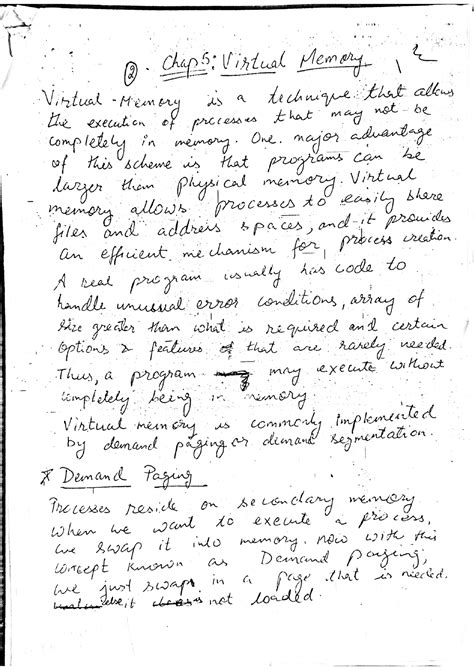 ② . Chap 5: Virtual Memory
Virtual-Memory is a technique that allows
the execution of processes that may not be
completely in memory. One major advantage
of this scheme is that programs can be
larger then physical memory. Virtual
memory allows processes to easily share
files and address spaces, and it provides
an efficient mechanism for process creation.
A real program usually has code to
handle unusual error conditions, array of
size greater then what is required and certain
options & features that are rarely needed.
Thus, a program may execute without
completely being in memory
Virtual memory is commonly implemented
by demand paging or demand segmentation.
* Demand Paging
Processes reside on secondary memory
when we want to execute a process,
we swap it into memory. now with this
concept known as Demand paging,
we just swap in a page that is needed.
else it not loaded.